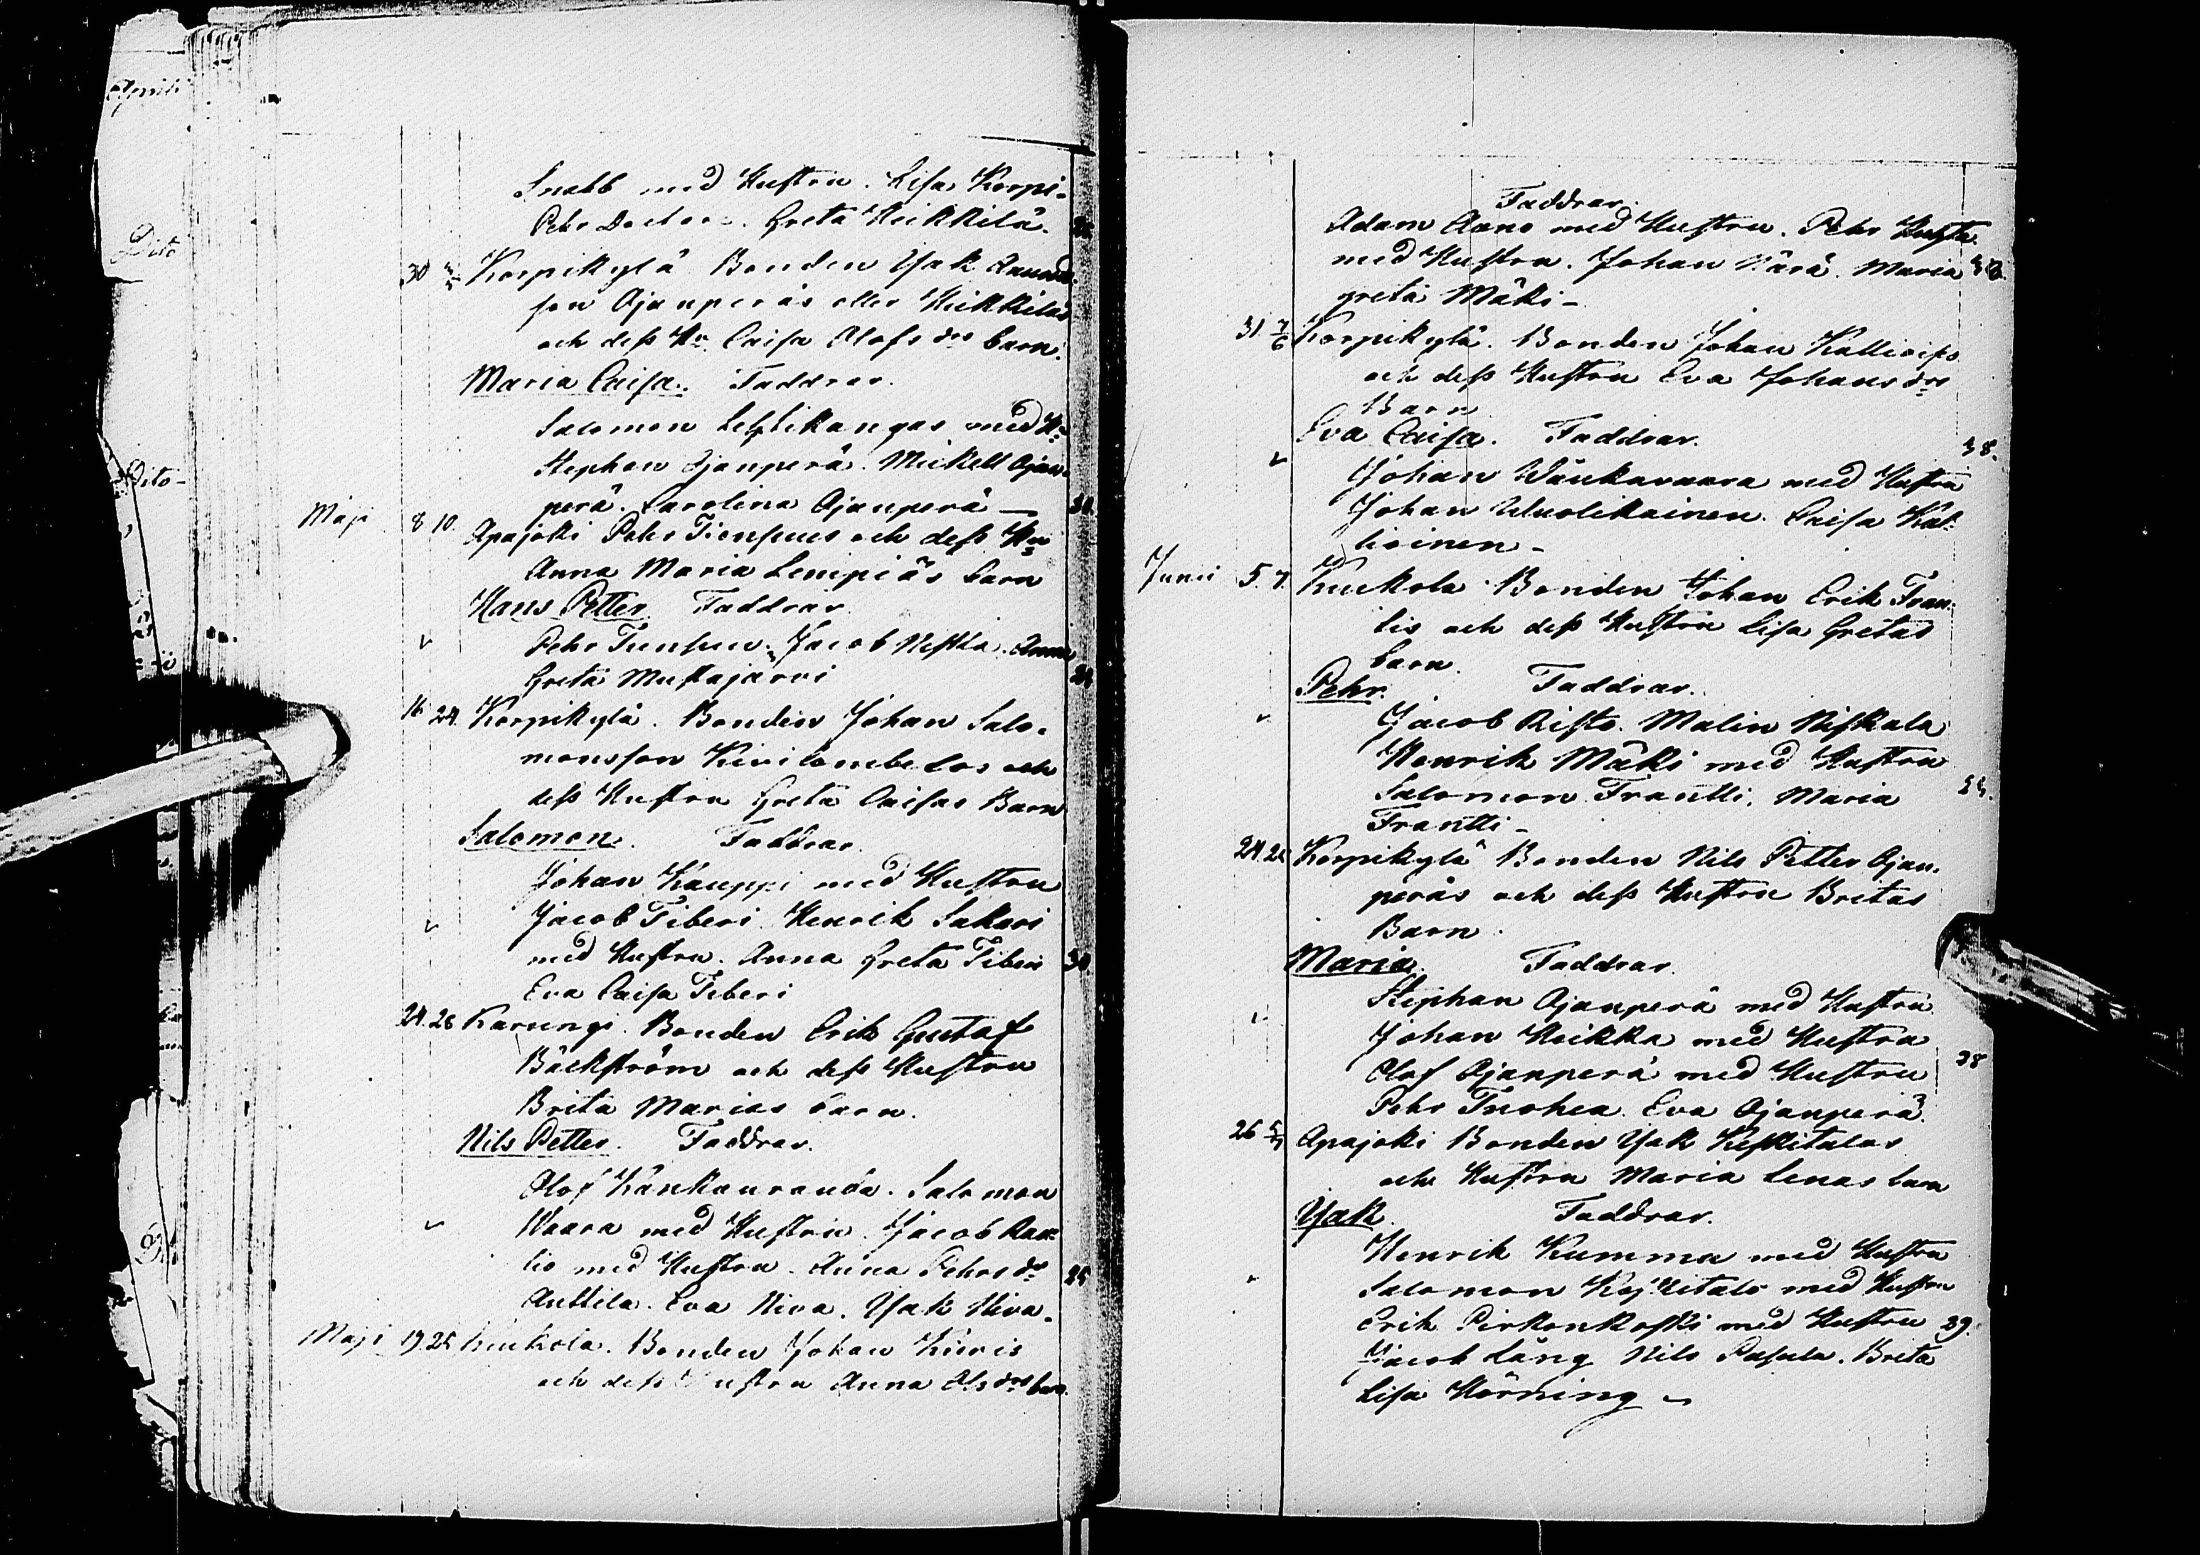 Aprili
Dito
Dito
Snabb med Hustru. Lisa Korpi-
Pehr Greta Heikkilä.
30 Korpikylä Bonden Isak Amunds
son Ojanperäs eller Heikkiläs
och dess Hu Caisa Olofsdrs barn.
Maria Caisa. Faddrar.
Salomon Lehtikangas med H:
Stephan Ojanperä. Mickell Ojan-
perä. Carolina Ojanperä
Maji 8 10. Apajoki Pehr Tiensuus och dess Hu
Anna Maria Lempiäs barn
Hans Petter Faddrar.
Pehr Tiensuu. Jacob Niska. Anna
Greta Mustajärvi
16 24. Korpikylä. Bonden Johan Salo-
monsson Kivilombolos och
dess Hustru Greta Caisas Barn
Salomon. Faddrar.
Johan Kauppi med Hustru
Jacob Tiberi Henrik Sakari
med Hustru. Anna Greta Tiberi 30
Eva Caisa Tiberi
24. 26 Karungi. Bonden Erik Gustaf
Bäckström och dess Hustru
Brita Marias barn.
Nils Petter. Faddrar.
Olof Känkänranda. Salomon
Waara med Hustru. Jacob Rau-
tio med Hustru. Anna Pehrsdr 25
Anttila. Eva Niva. Isak Niva.
Maji 19 25 Kuckola. Bonden Johan Kieris
och dess Hustru Anna Olsdrs barn.
Faddrar.
Adam Aano med Hustru. Pehr Huhta
med Hustru. Johan Närä. Maria
Greta Mäki
31 7/6 Korpikylä. Bonden Johan Kallioiss
och dess Hustru Eva Johansdrs
Barn
Eva Caisa. Faddrar. 38.
Johan Wänkavaara med Hustru
Johan Wuolikainen. Caisa Kal-
lioinen
Junii 5 7. Kuckola. Bonden Johan Erik Fran-
tis och dess Hustru Lisa Gretas
barn.
Pehr. Faddrar.
Jacob Risto. Malin Niskala
Henrik Mäki med Hustru
Salomon Frantti. Maria
Frantti
24 25 Korpikylä Bonden Nils Petter Ojan-
peräs och dess Hustru Britas
Barn.
Maria. Faddrar.
Stephan Ojanperä med Hustru
Johan Heikka med Hustru
Olof Ojanperä med Hustru 38
Pehr Tuohea. Eva Ojanperä
26 Apajoki Bonden Isak Keskitalos
och Hustru Maria Lenas barn
Isak. Faddrar.
Henrik Kumma med Hustru
Salomon Keskitalo med Hustru
Erik Pirkonkoski med Hustru 29.
Jacob Lång Nils Pasula. Brita
Lisa Hörning